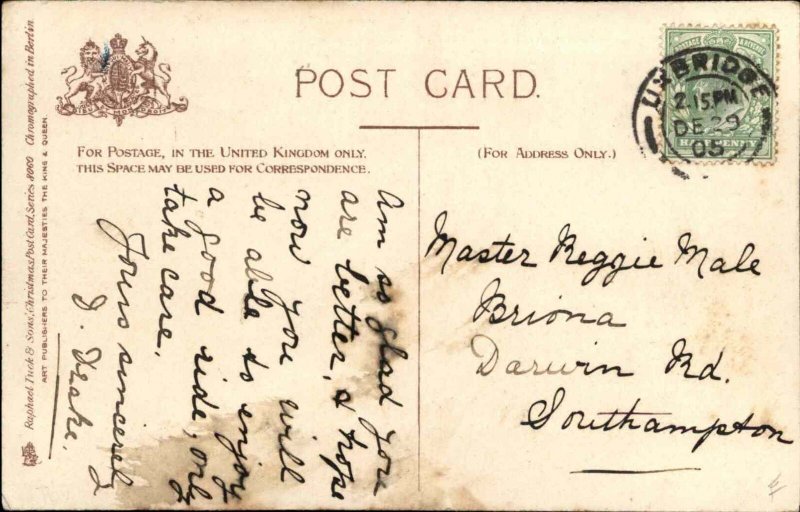 POST CARD.
UXBRIDGE
2.15.PM
DE 29
05
POSTAGE & REVENUE
HALFPENNY
FOR POSTAGE, IN THE UNITED KINGDOM ONLY.
THIS SPACE MAY BE USED FOR CORRESPONDENCE.
(FOR ADDRESS ONLY.)
Raphael Tuck & Sons' Christmas Post Card Series 8060 Chromographed in Berlin
ART PUBLISHERS TO THEIR MAJESTIES THE KING & QUEEN.
Am so glad you
are better, & hope
now you will
be able to enjoy
a good ride, only
take care.
Yours sincerely
Drake.
Master Reggie Male
Briona
Darwin Rd.
Southampton